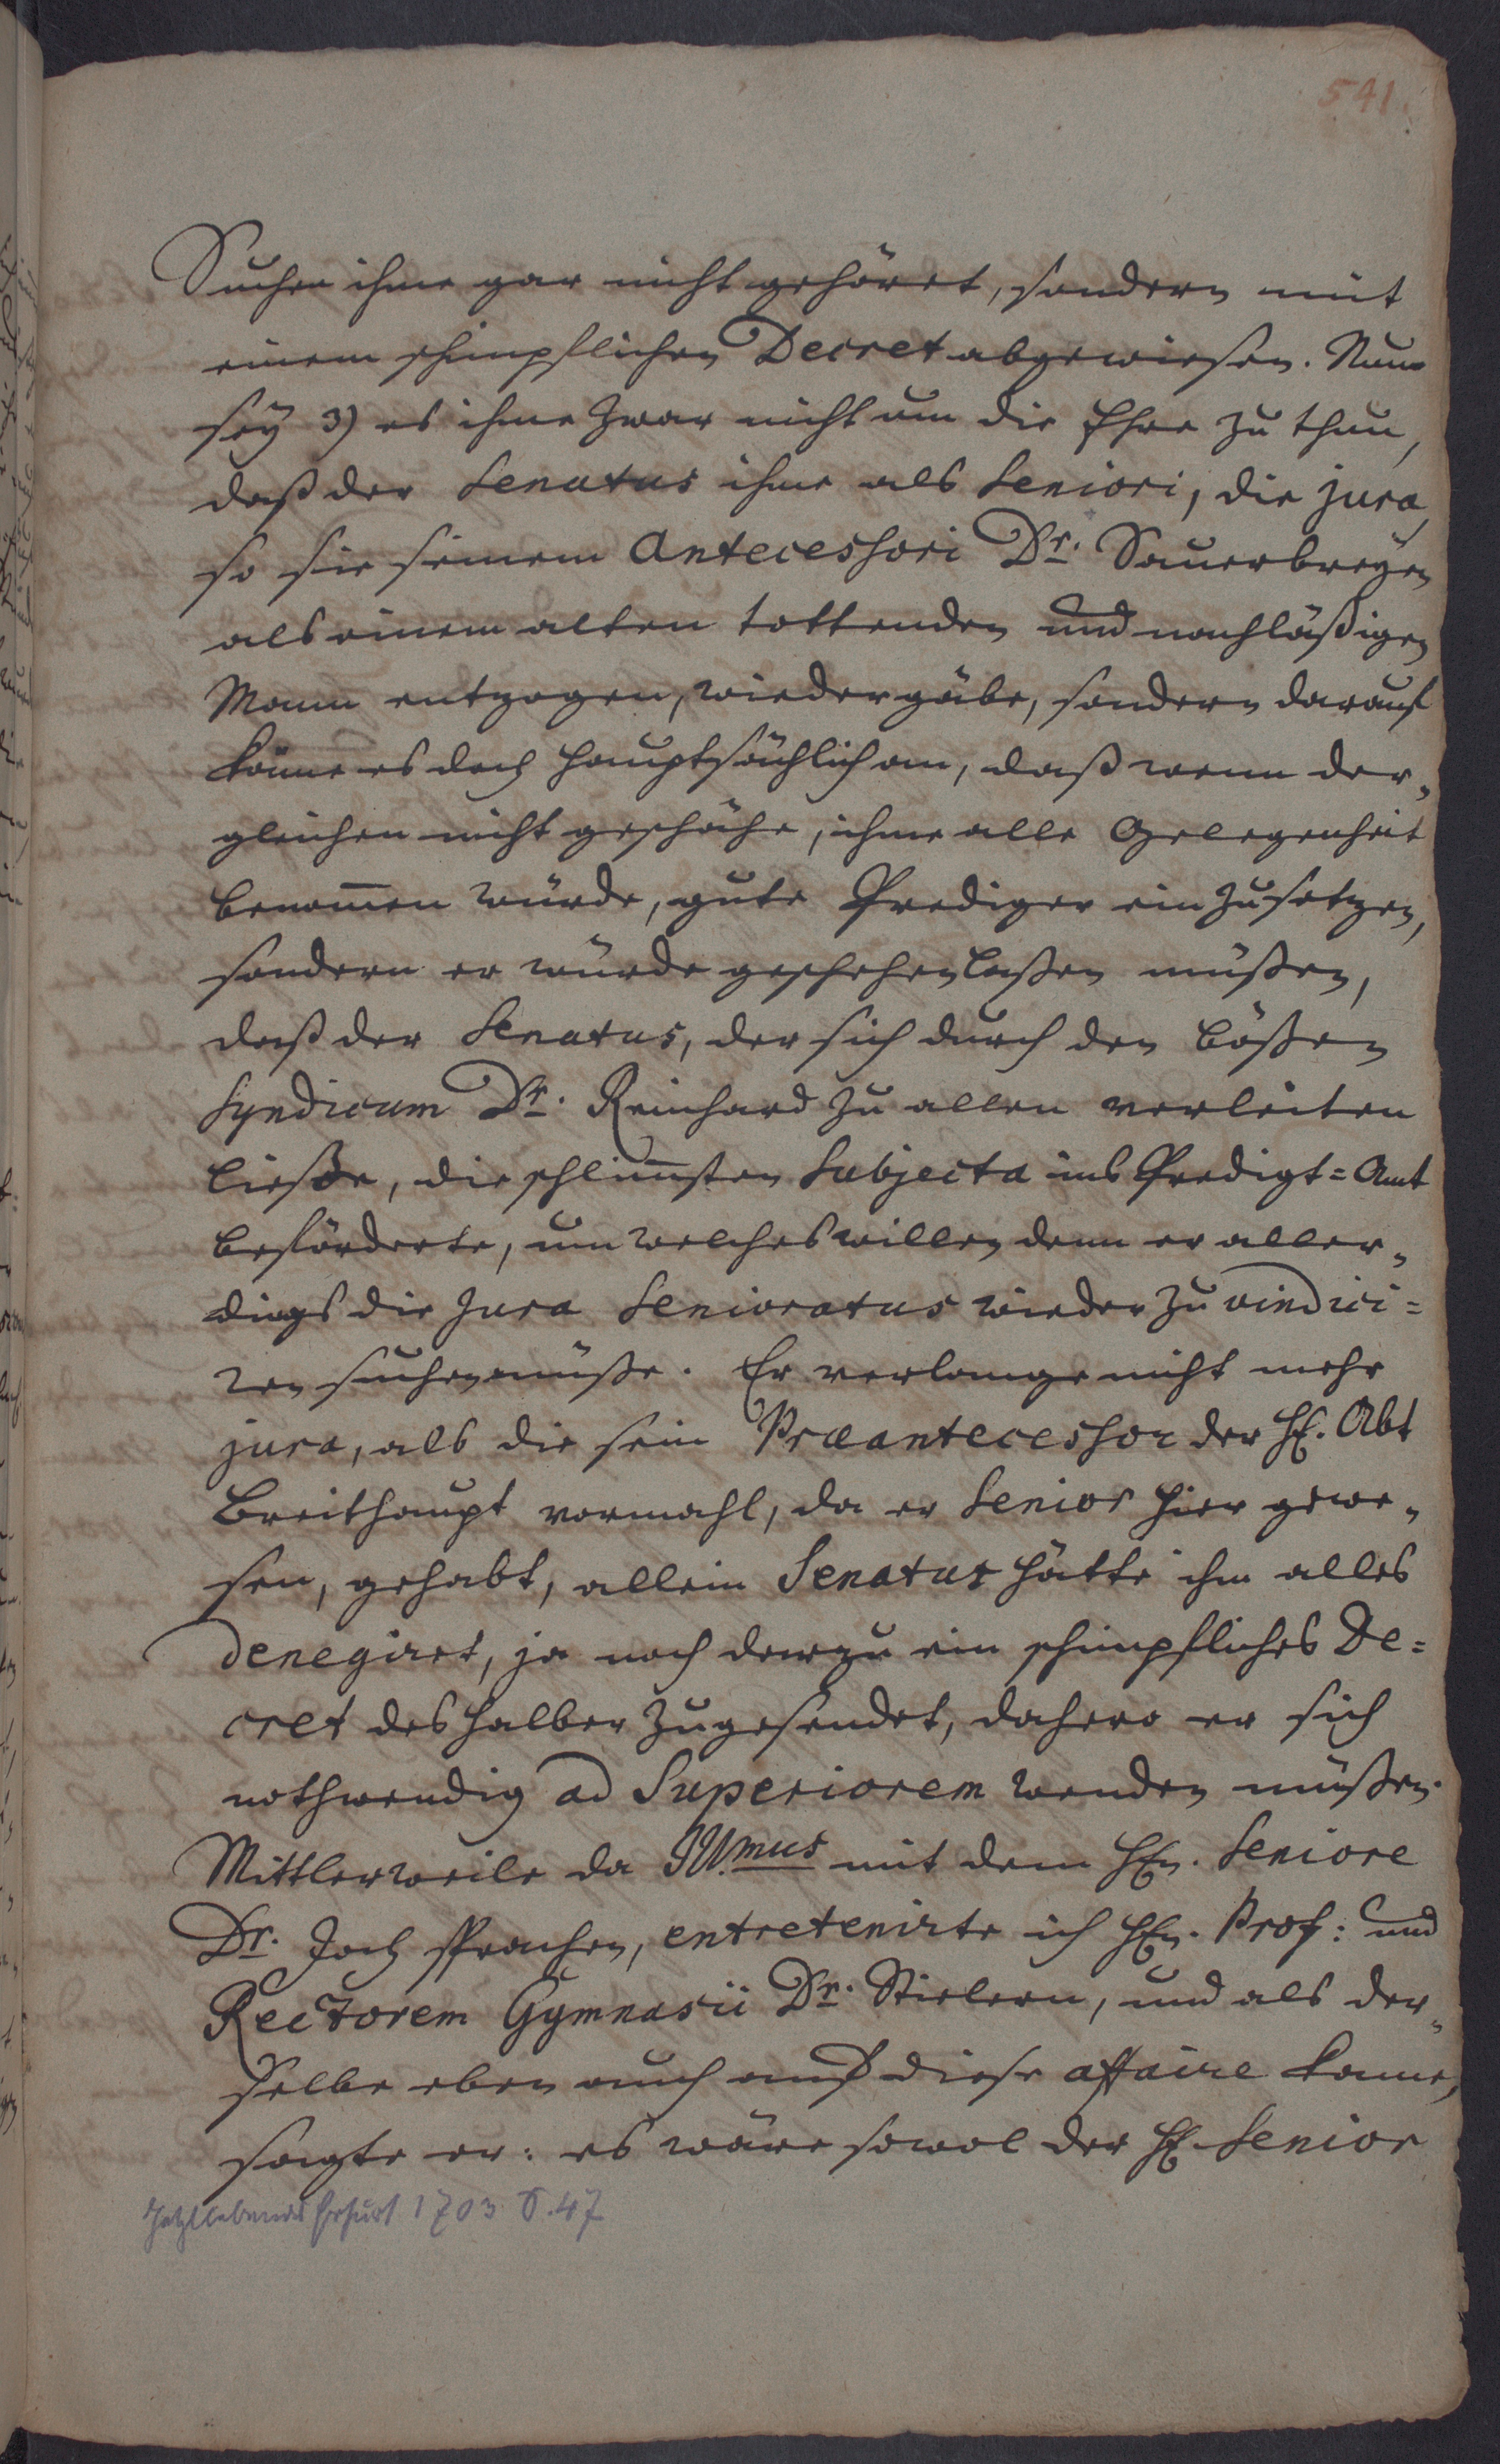 541.
Suchen ihme gar nicht gehöret, sondern mit
einem schimpflichen Decret abgewiesen. Nun
sey 3) es ihme zwar nicht um die Ehre zu thun,
daß der Senatus ihme als Seniori, die jura,
so sie seinem Antecessori Dr. Sauerbreyen
als einem alten tottenden und nachläßigen
Mann entzogen, wiedergäbe, sondern darauf
käme es doch hauptsächlich an, daß wenn der„
gleichen nicht geschähe, ihme alle Gelegenheit
benom̅en würde, gute Prediger einzusetzen,
sondern er würde geschehen laßen müßen,
daß der Senatus, der sich durch den bößen
Syndicum Dr. Reinhard zu allen verleiten
ließe, die schlim̅sten Subjecta ins Predigt=Amt
beförderte, um welches willen denn er aller„
dings die Jura Senioratus wieder zu vindici=
ren suchen müße. Er verlange nicht mehr
jura, als die sein Præantecessor der H. Abt
Breithaupt vormahl, da er Senior hier gewe„
sen, gehabt, allein Senatus hätte ihm alles
denegiret, ja noch darzu ein schimpfliches De=
cret deshalber zugesendet, dahero er sich
nothwendig ad Superiorem wenden müßen.
Mittlerweile da Illmus mit dem Hn. Seniore
Dr. Joch sprachen, entretenirte ich Hn. Prof: und
Rectorem Gymnasii Dr. Stielern, und als der„
selbe eben auch auf diese affaire kame,
sagte er: es wäre sowol der H. Senior
Jetztlebendes Erfurt 1703 S. 47